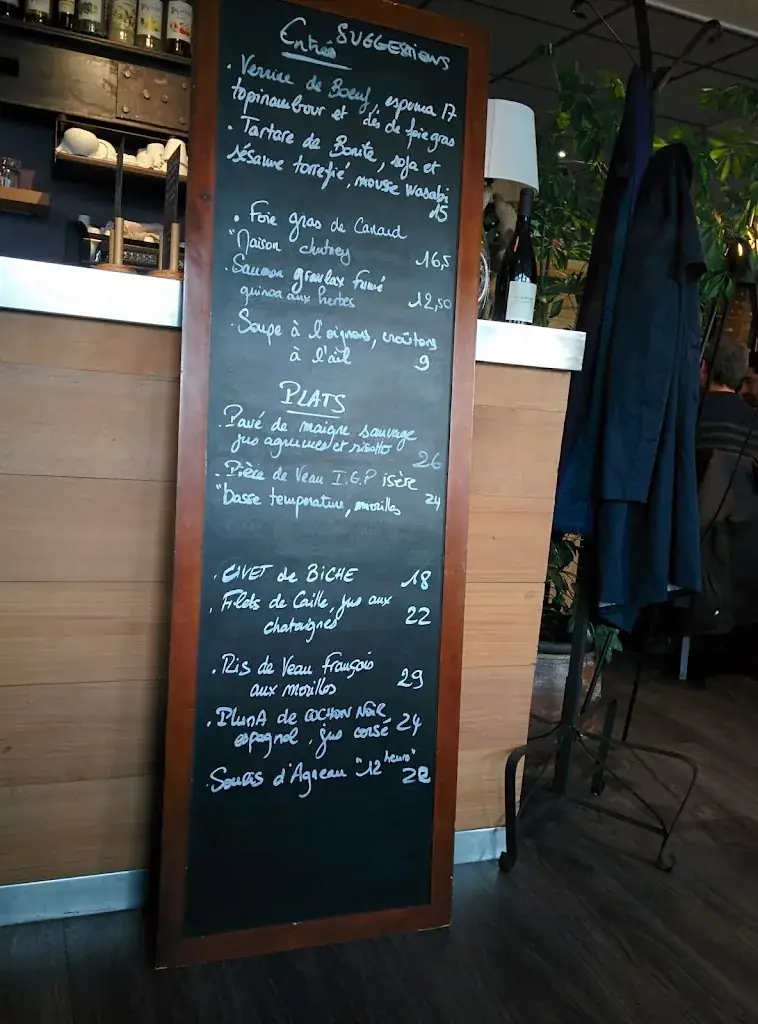 Entrées SUGGESTIONS
. Verrine de Boeuf, espuma 17
topinambour et dés de foie gras
. Tartare de Bonite, soja et
sésame torrefié, mousse wasabi
15
. Foie gras de Canard
"Maison chutney 16,5
. Saumon gravlax fumé
quinoa aux herbes 12,50
. Soupe à l'oignons, croûtons
à l'ail 9
PLATS
. Pavé de maigre sauvage
jus agrumes et risotto 26
. Pièce de Veau I.G.P isère
"basse temperature, morilles 24
. CIVET de BiCHE 18
. Filets de Caille, jus aux
chataignes 22
. Ris de Veau François
aux morilles 29
. PlumA de COCHON NOiR
espagnol, jus corsé 24
. Souris d'Agneau "12 heures"